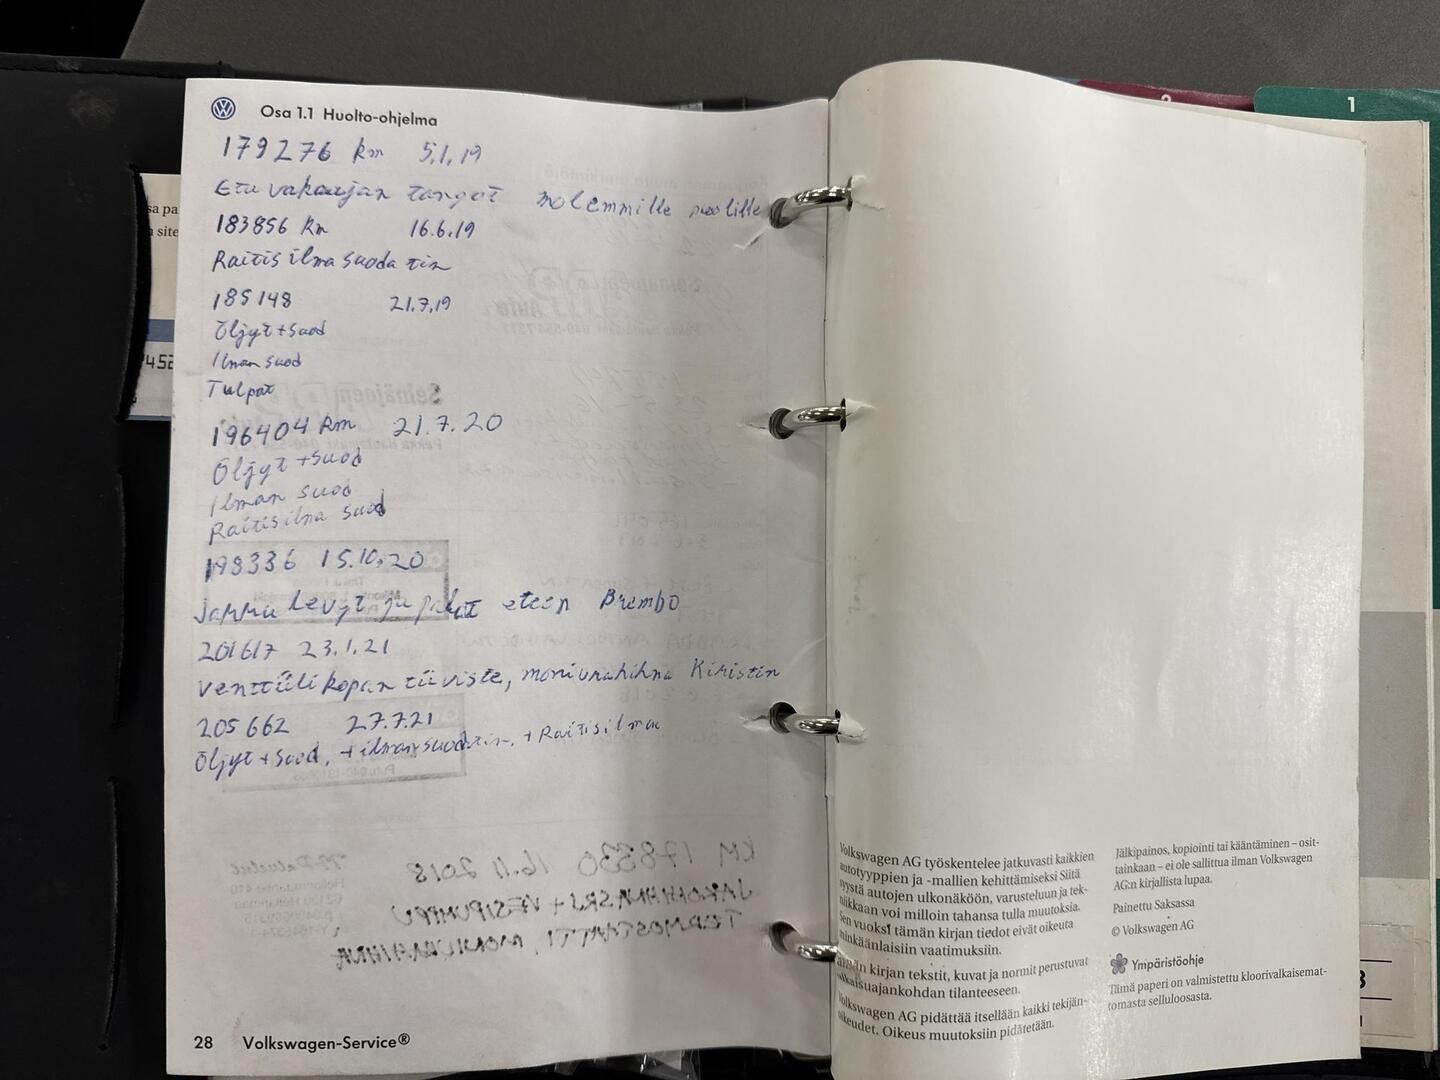 Osa 1.1 Huolto-ohjelma
179276 km 5.1.19
Etu vakaajan tangot molemmille puolille
183856 km 16.6.19
Raitis ilma suodatin
185148 21.7.19
Öljyt + suod
Ilman suod
Tulpat
196404 km 21.7.20
Öljyt + suod
Ilman suod
Raitisilma suod
198336 15.10.20
Jarru levyt ja palat eteen Brembo
201617 23.1.21
Venttiilikopan tiiviste, moniurahihna Kiristin
205662 27.7.21
Öljyt + suod, + ilmansuodatin, + Raitisilma
KM 178330 16.11.2018
JAKOHIHNASRJ + VESIPUMPPU
TERMOSTAATTI, MONIURAHIHNA
28 Volkswagen-Service®
sa pa
a site
452
Volkswagen AG työskentelee jatkuvasti kaikkien
autotyyppien ja -mallien kehittämiseksi Siitä
syystä autojen ulkonäköön, varusteluun ja tek-
niikkaan voi milloin tahansa tulla muutoksia.
Sen vuoksi tämän kirjan tiedot eivät oikeuta
minkäänlaisiin vaatimuksiin.
kirjan tekstit, kuvat ja normit perustuvat
julkaisuajankohdan tilanteeseen.
Volkswagen AG pidättää itsellään kaikki tekijän-
oikeudet. Oikeus muutoksiin pidätetään.
Jälkipainos, kopiointi tai kääntäminen – osit-
tainkaan – ei ole sallittua ilman Volkswagen
AG:n kirjallista lupaa.
Painettu Saksassa
© Volkswagen AG
Ympäristöohje
Tämä paperi on valmistettu kloorivalkaisemat-
tomasta selluloosasta.
2
1
3